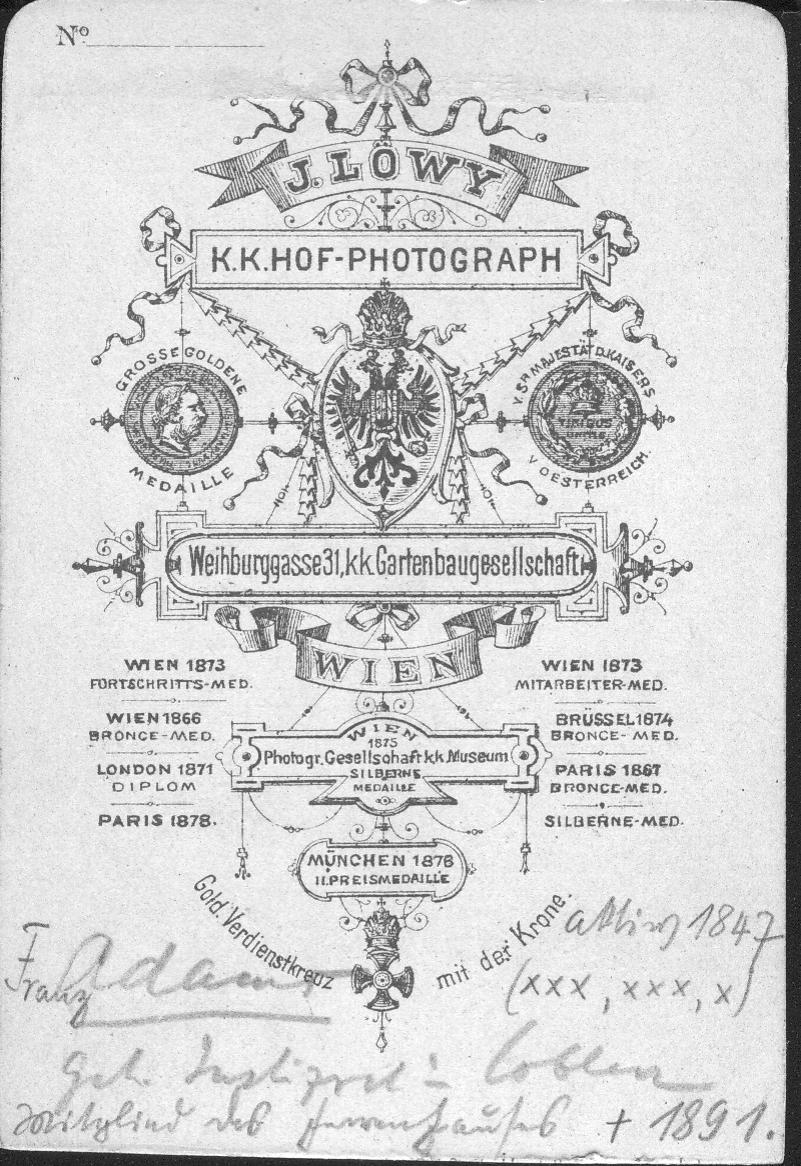 No
J. LÖWY
K.K. HOF-PHOTOGRAPH
GROSSE GOLDENE
MEDAILLE
V. Sr. MAJESTÄT D. KAISERS
V OESTERREICH.
Weihburggasse 31, k.k. Gartenbaugesellschaft
WIEN
WIEN 1873
FORTSCHRITTS-MED.
WIEN 1866
BRONCE-MED.
LONDON 1871
DIPLOM
PARIS 1878.
WIEN
1875
Photogr. Gesellschaft k.k. Museum
SILBERNE
MEDAILLE
WIEN 1873
MITARBEITER-MED.
BRÜSSEL 1874
BRONCE-MED.
PARIS 1867
BRONCE-MED.
SILBERNE-MED.
MÜNCHEN 1876
II. PREISMEDAILLE
Gold. Verdienstkreuz mit der Krone.
aktiv 1847
(xxx, xxx, x)
Franz Adams
Geh. Justizrat in Coblenz
Mitglied des Herrenhauses + 1891.